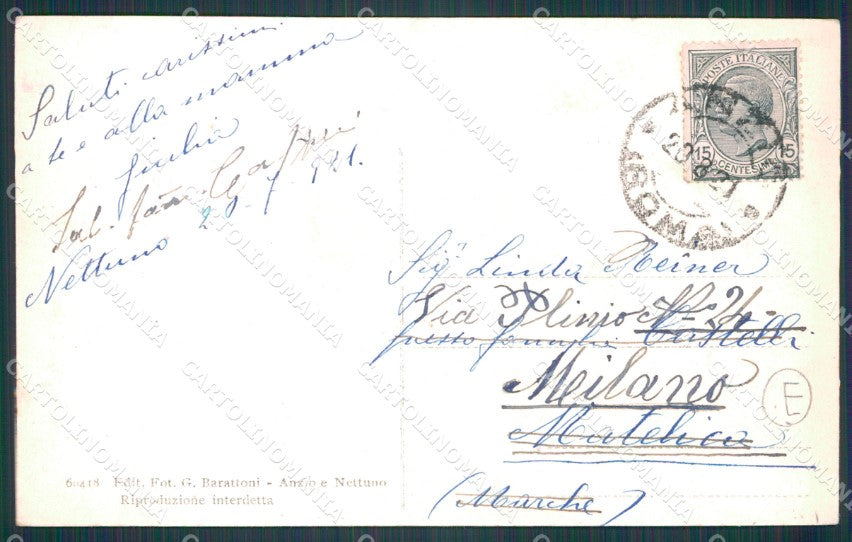 Saluti carissimi
a te e alla mamma
Giulia
Sal.
Nettuno 29-7-921.
POSTE ITALIANE
15 CENTESIMI 15
ROMA
Sigª Linda Meiner
Via Plinio Nº 24
presso famiglia Castelli
Milano
Matelica
(Marche)
E
60418 Edit. Fot. G. Barattoni - Anzio e Nettuno
Riproduzione interdetta
CARTOLINOMANIA